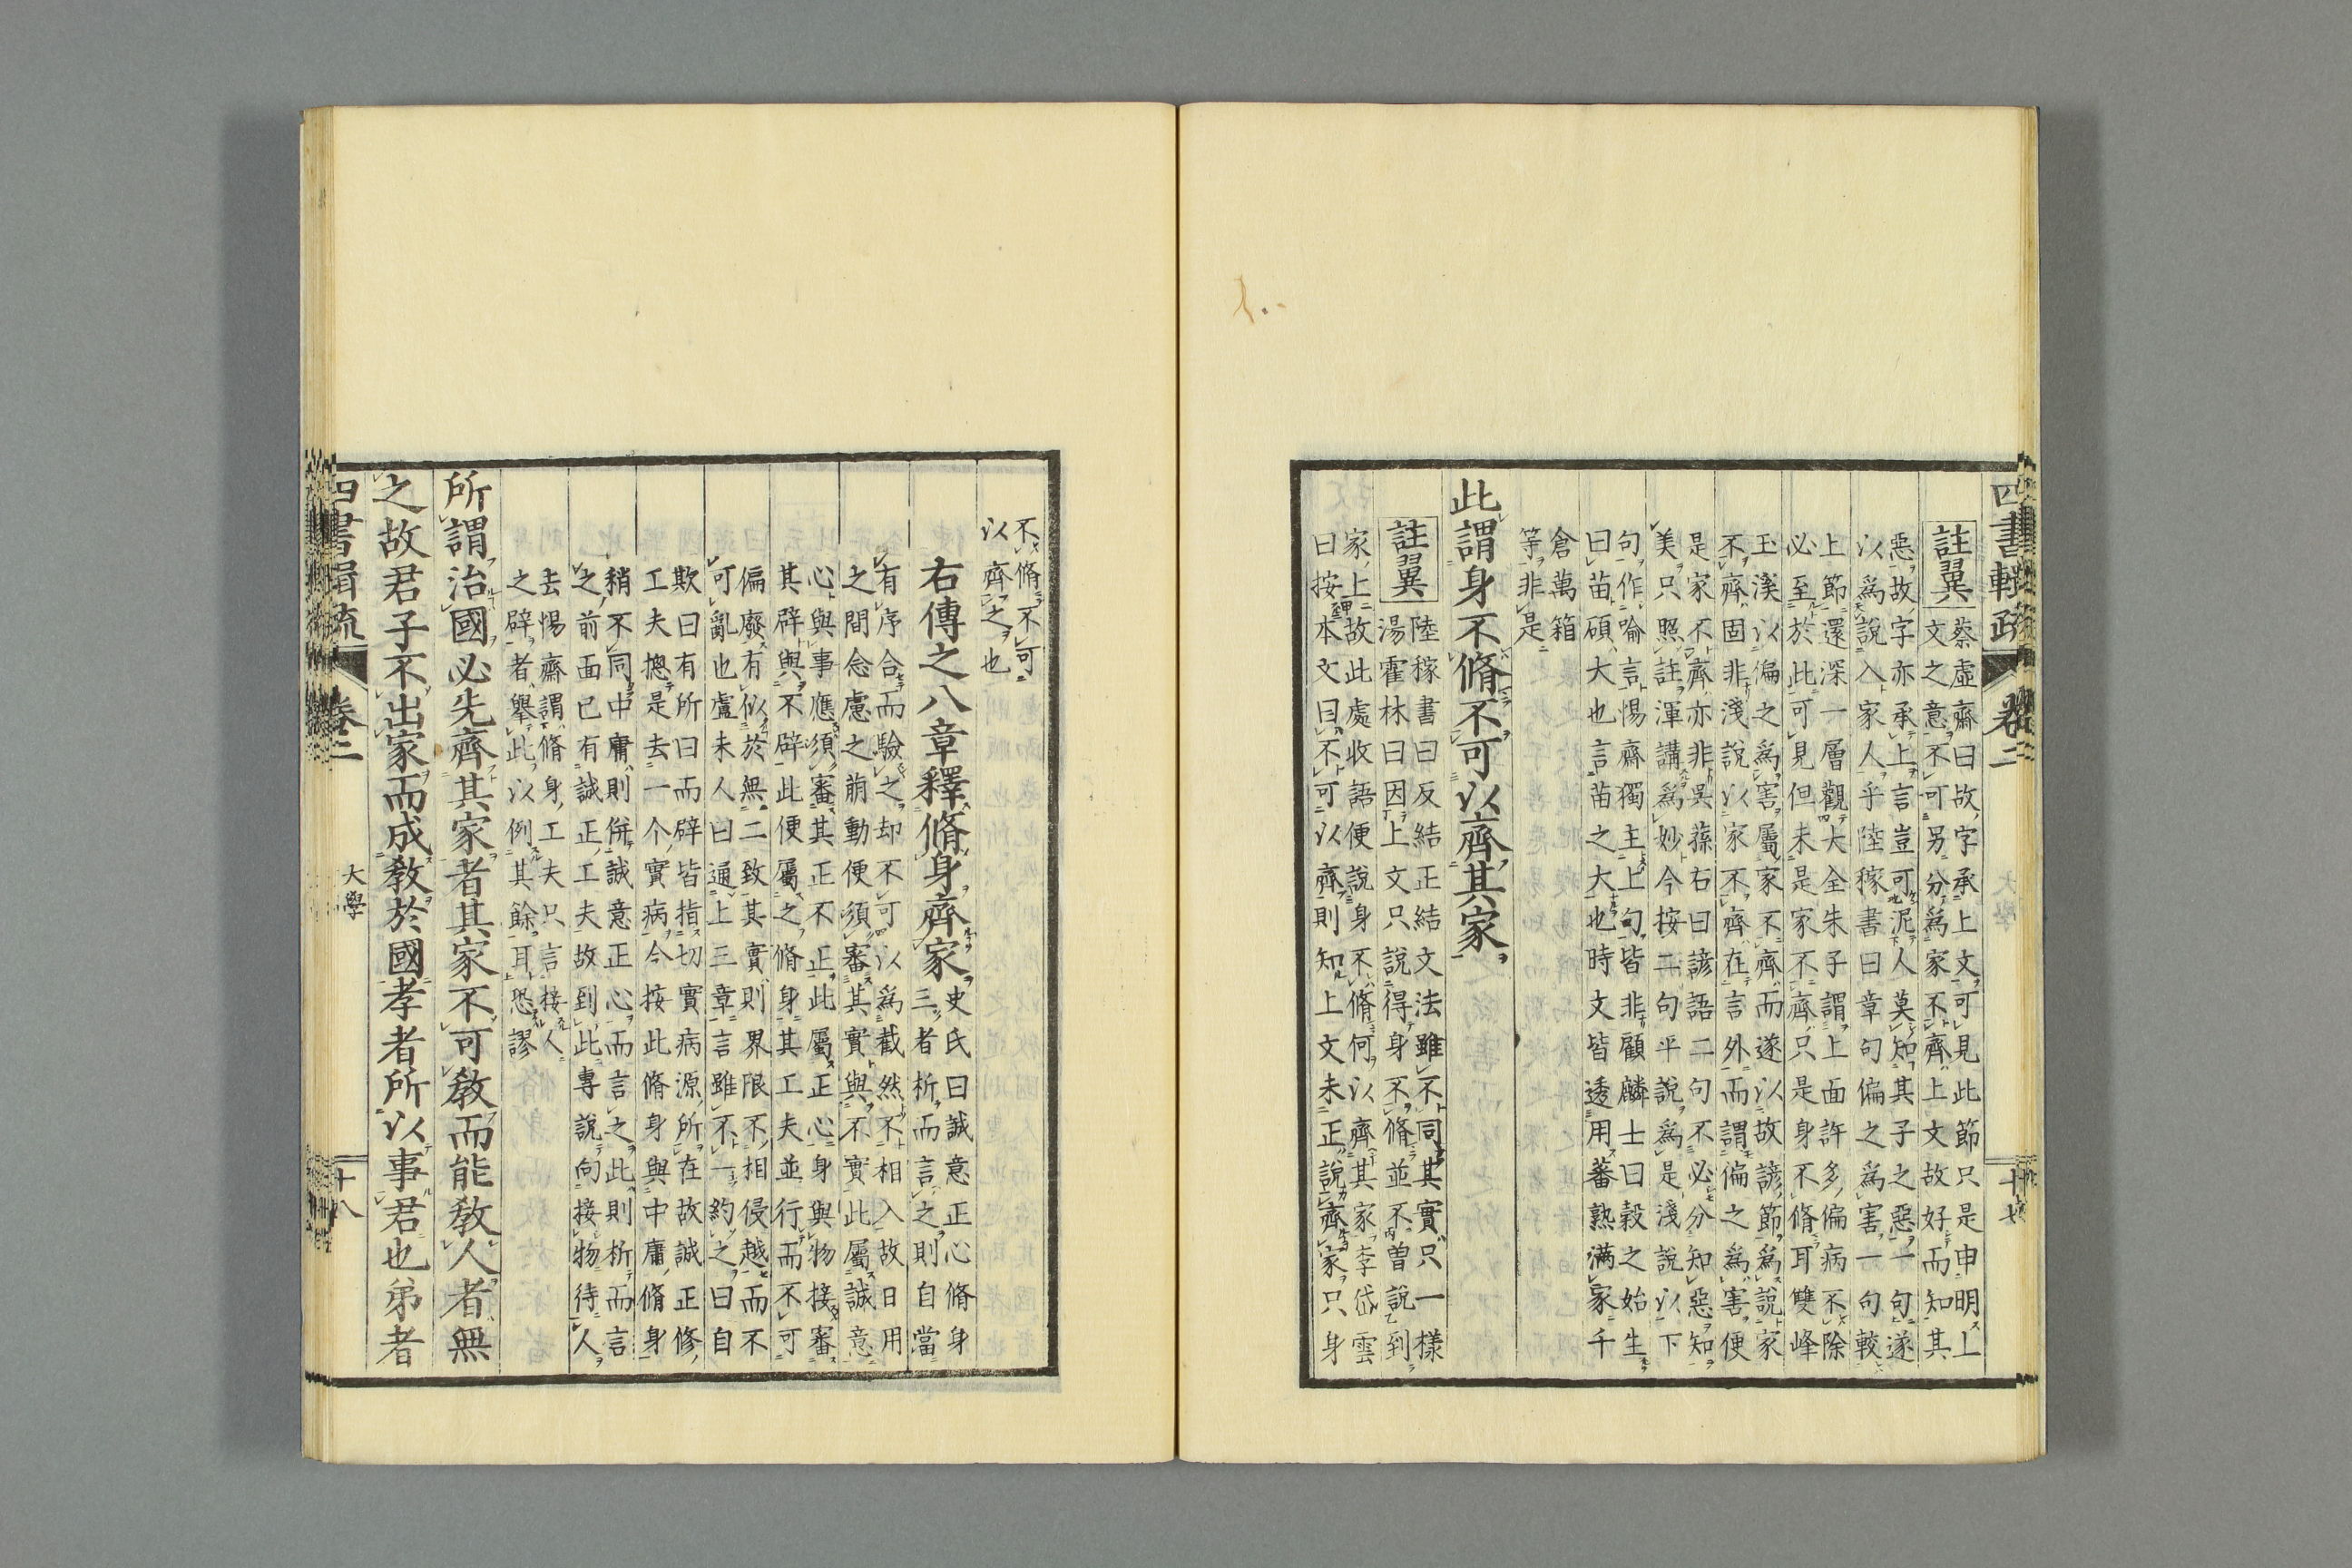 四書輯疏 卷二 十七
註翼
蔡虛齋曰故字承上文可見此節只是申明上
文之意不可另分爲家不齊上文故好而知其
惡故字亦承上言豈可泥人莫知其子之惡一句遂
以爲說入家人乎陸稼書曰章句偏之爲害一句較
上節還深一層觀大全朱子謂上面許多偏病不除
必至於此可見但未是家不齊只是身不脩耳雙峰
玉溪以偏之爲害屬家不齊而遂以故諺節爲說家
不齊固非淺說以家不齊在言外而謂偏之爲害便
是家不齊亦非吳蓀右曰諺語二句不必分知惡知
美只照註渾講爲妙今按二句平說爲是淺說以下
句作喩言惕齋獨主上句皆非顧麟士曰穀之始生
曰苗碩大也言苗之大也時文皆透用蕃熟滿家千
倉萬箱
等非是
此謂身不脩不可以齊其家
註翼
陸稼書曰反結正結文法雖不同其實只一樣
湯霍林曰因上文只說得身不脩並不曽說到
家上故此處收語便說身不脩何以齊其家李岱雲
曰按本文曰不可以齊則知上文未正說齊家只身
不脩不可
以齊之也
右傳之八章釋脩身齊家
史氏曰誠意正心脩身
三者析而言之則自當
有序合而驗之却不可以爲截然不相入故日用
之間念慮之萠動便須審其實與不實此屬誠意
心與事應須審其正不正此屬正心身與物接審
其辟與不辟此便屬之脩身其工夫並行而不可
偏廢有似於無二致其實則界限不相侵越而不
可亂也盧未人曰通上三章言雖不一約之曰自
欺曰有所曰而辟皆指切實病源所在故誠正修
工夫摠是去一个實病今按此脩身與中庸脩身
稍不同中庸則併誠意正心而言之此則析而言
之前面已有誠正工夫故到此專說向接物待人
去惕齋謂脩身工夫只言接人
之辟者舉此以例其餘耳恐謬
所謂治國必先齊其家者其家不可敎而能敎人者無
之故君子不出家而成敎於國孝者所以事君也弟者
四書輯疏 卷二 大學 十八